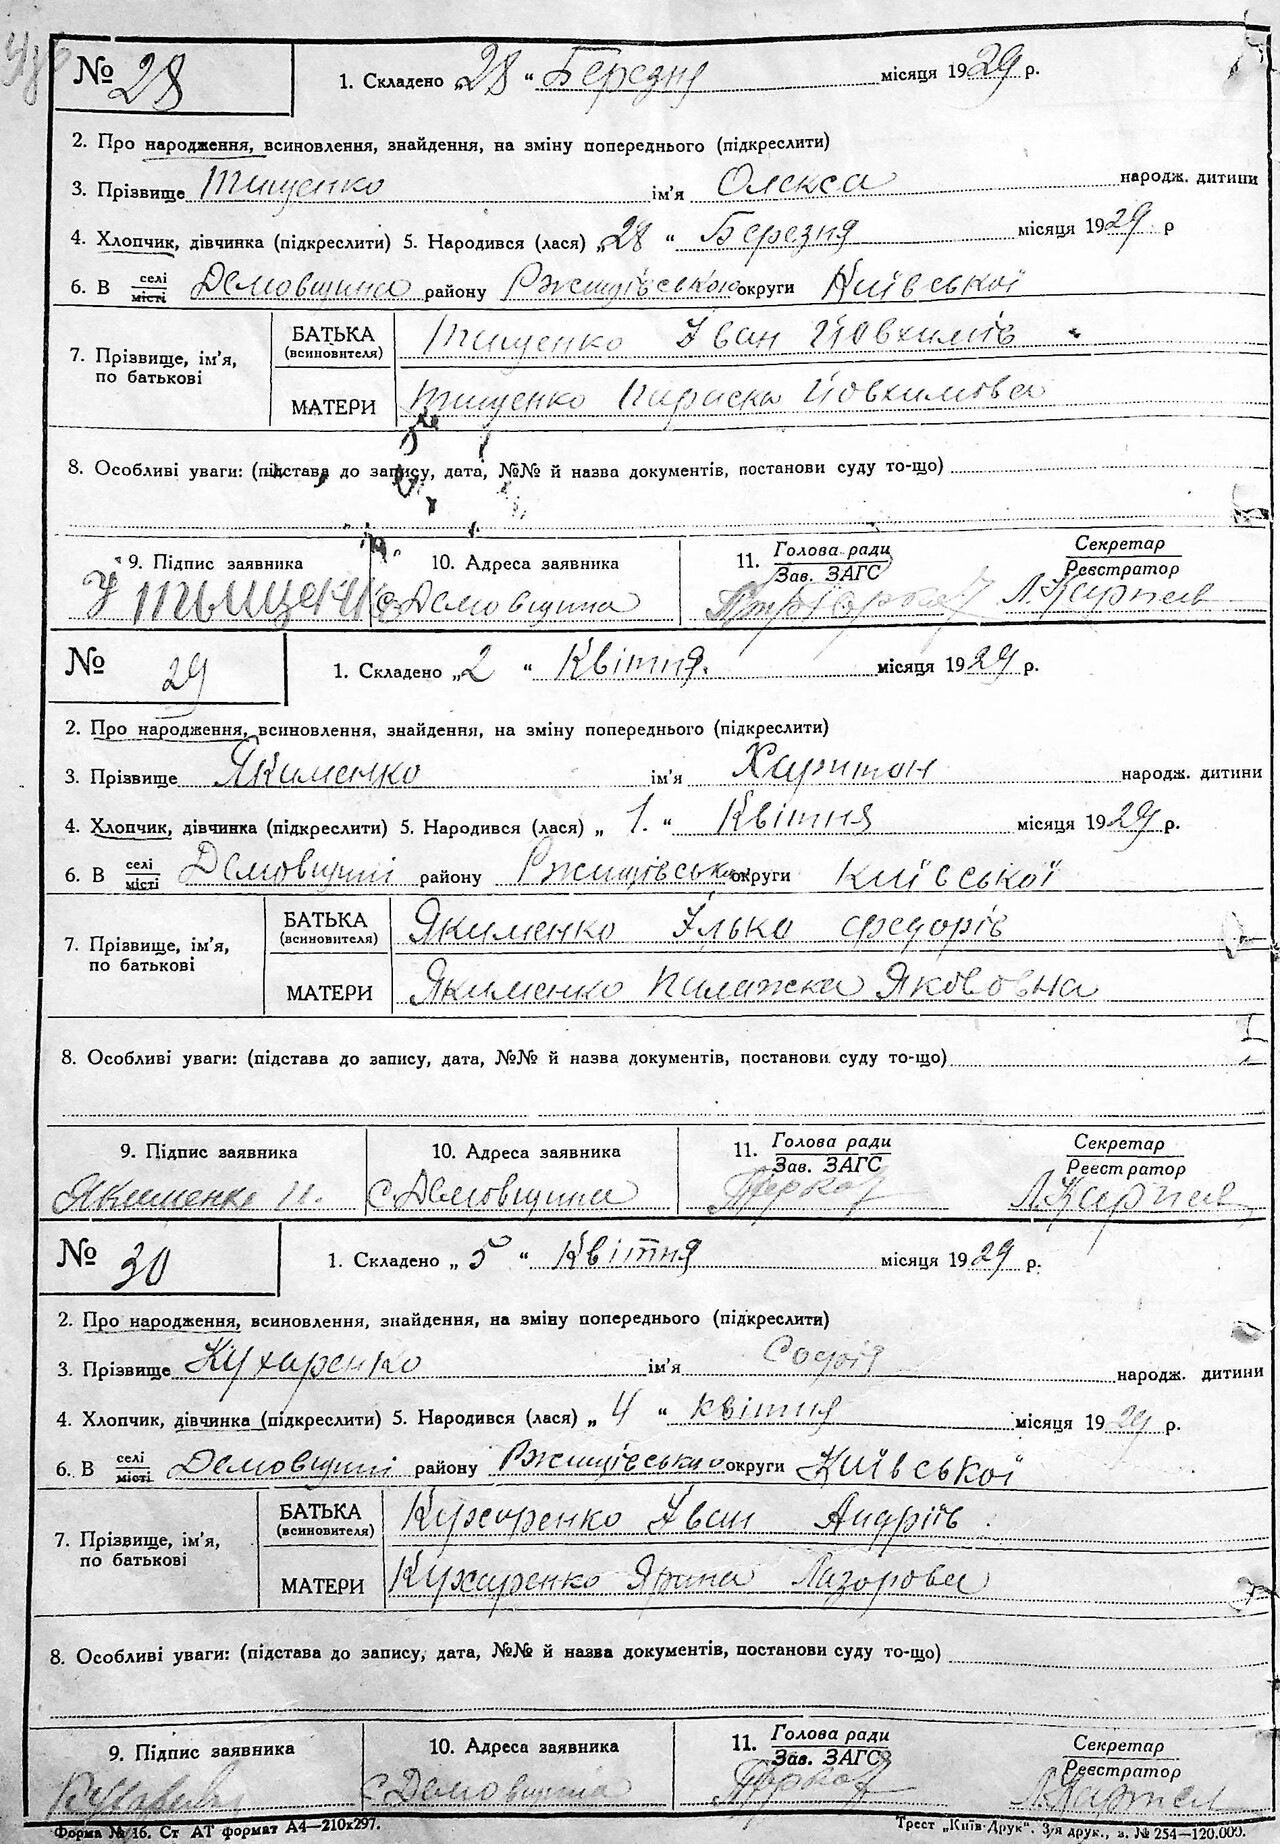 № 28
1. Складено „28“ Березня місяця 1929 р.
2. Про народження, всиновлення, знайдення, на зміну попереднього (підкреслити)
3. Прізвище Тищенко ім'я Олекса народж. дитини
4. Хлопчик, дівчинка (підкреслити) 5. Народився (лася) „28“ Березня місяця 1929 р
6. В селі місті Демовщина району Ржищівського округи Київської
7. Прізвище, ім'я, по батькові
БАТЬКА (всиновителя) Тищенко Іван Йовхимів
МАТЕРИ Тищенко Параска Йовхимовна
8. Особливі уваги: (підстава до запису, дата, №№ й назва документів, постанови суду то-що)
9. Підпис заявника
10. Адреса заявника
11. Голова ради Зав. ЗАГС
Секретар Реєстратор
с Демовщина
№ 29
1. Складено „2“ Квітня. місяця 1929 р.
2. Про народження, всиновлення, знайдення, на зміну попереднього (підкреслити)
3. Прізвище Якименко ім'я Харитон народж. дитини
4. Хлопчик, дівчинка (підкреслити) 5. Народився (лася) „1.“ Квітня місяця 1929 р.
6. В селі місті Демовщині району Ржищівського округи Київської
7. Прізвище, ім'я, по батькові
БАТЬКА (всиновителя) Якименко Ілько Федорів
МАТЕРИ Якименко Палажка Якововна
8. Особливі уваги: (підстава до запису, дата, №№ й назва документів, постанови суду то-що)
9. Підпис заявника
10. Адреса заявника
11. Голова ради Зав. ЗАГС
Секретар Реєстратор
Якименко с Демовщина
№ 30
1. Складено „5“ Квітня місяця 1929 р.
2. Про народження, всиновлення, знайдення, на зміну попереднього (підкреслити)
3. Прізвище Кухаренко ім'я Софія народж. дитини
4. Хлопчик, дівчинка (підкреслити) 5. Народився (лася) „4“ квітня місяця 1929 р.
6. В селі місті Демовщині району Ржищівського округи Київської
7. Прізвище, ім'я, по батькові
БАТЬКА (всиновителя) Кухаренко Іван Андріїв
МАТЕРИ Кухаренко Ярина Лазорова
8. Особливі уваги: (підстава до запису, дата, №№ й назва документів, постанови суду то-що)
9. Підпис заявника
10. Адреса заявника
11. Голова ради Зав. ЗАГС
Секретар Реєстратор
с Демовщина
Форма № 16. Ст АТ формат А4—210х297.
Трест „Київ-Друк“. 3/я друк., з. № 254—120.000.